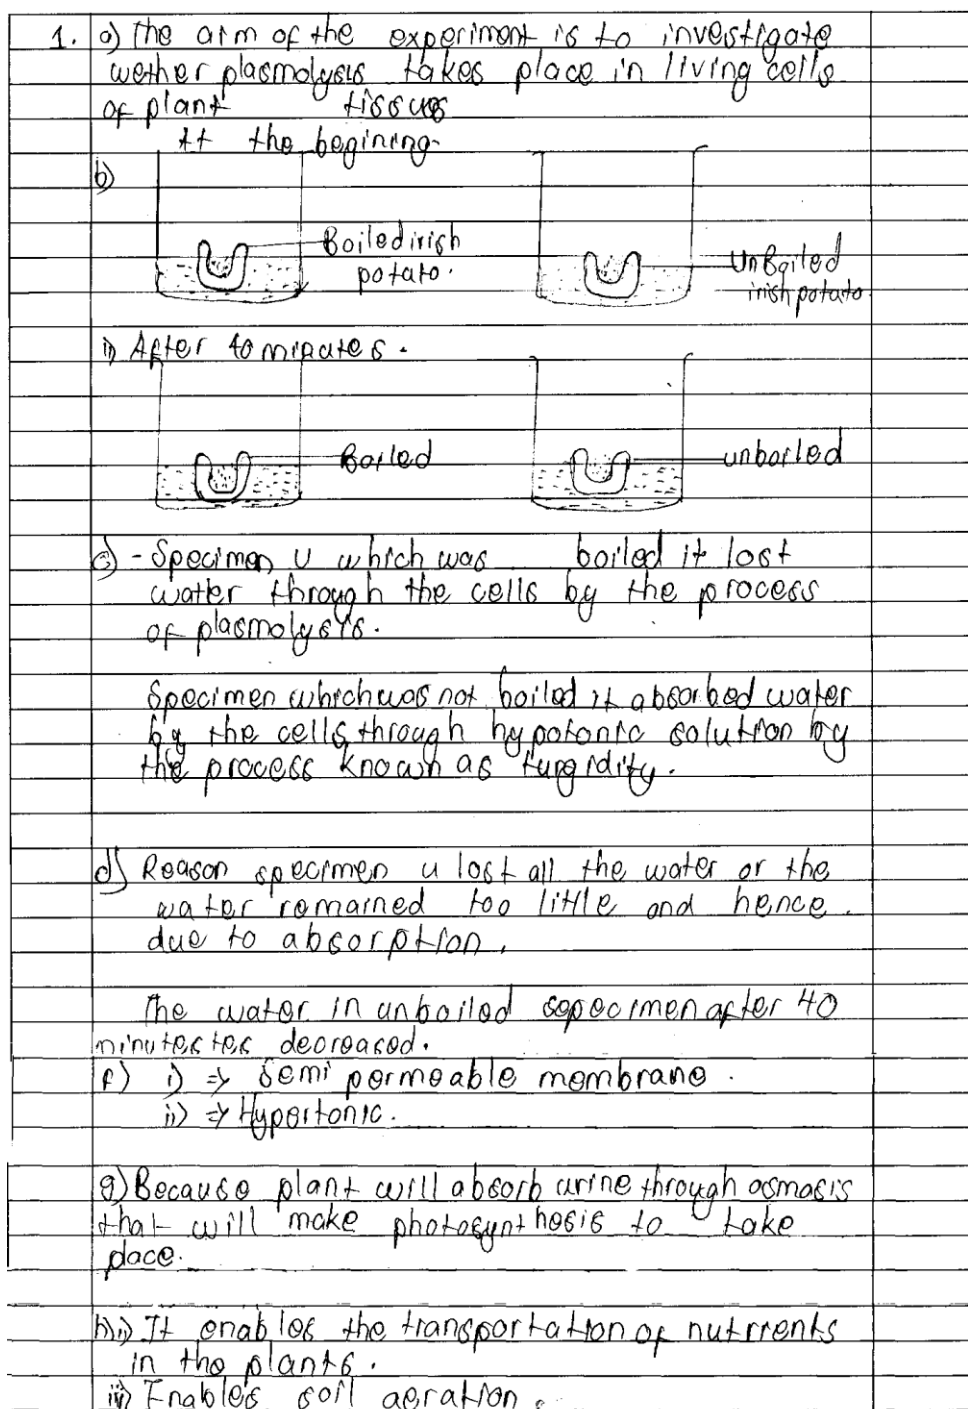 1. a) The aim of the experiment is to investigate
wether plasmolysis takes place in living cells
of plant tissues
At the begining
b)
Boiled irish
potato.
UnBoiled
irish potato
ii) After 40 minutes.
Boiled
unboiled
c) - Specimen U which was boiled it lost
water through the cells by the process
of plasmolysis.
Specimen which was not boiled it absorbed water
by the cells through hypotonic solution by
the process known as turgidity.
d) Reason specimen u lost all the water or the
water remained too little and hence.
due to absorption.
The water in unboiled sepecimen after 40
minutestes decreased.
f) i) => Semi permeable membrane.
ii) => Hypertonic.
g) Because plant will absorb urine through osmosis
that will make photosynthesis to take
place.
h) i) It enables the transportation of nutrients
in the plants.
ii) Enables soil aeration.